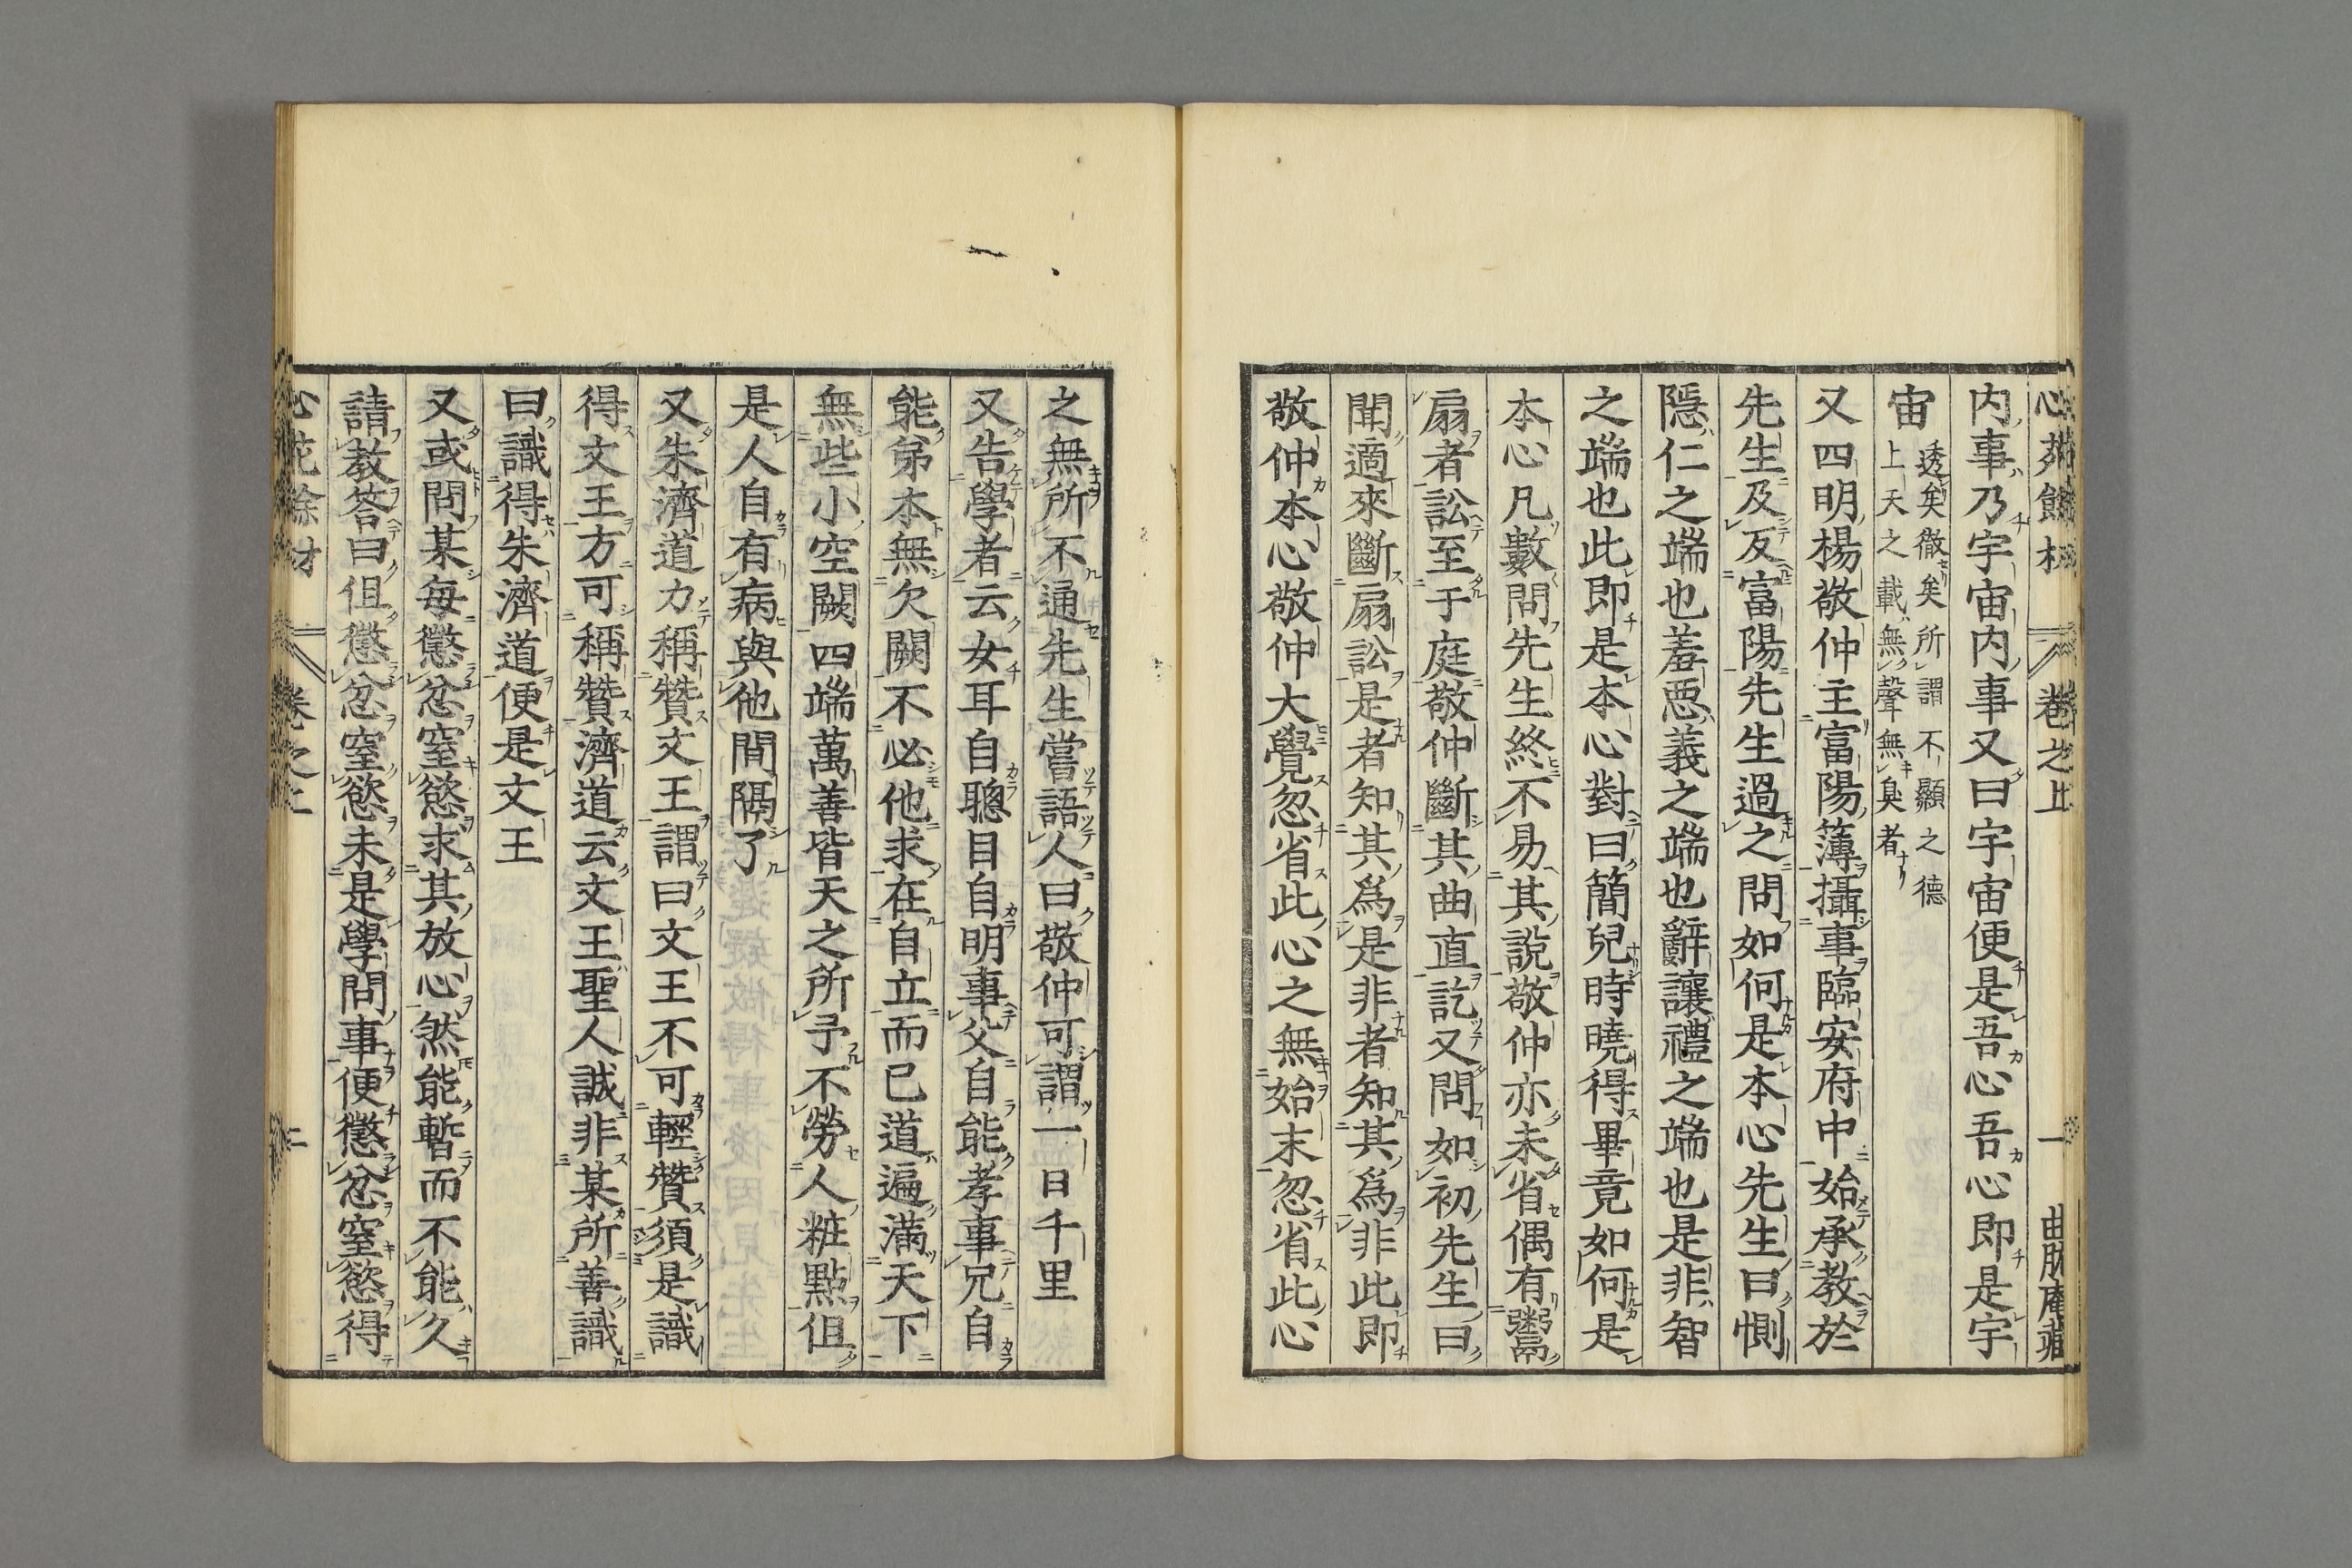 卷之上
一
内事乃宇宙内事又曰宇宙便是吾心吾心即是宇
宙
透矣徹矣所謂不顯之德
上天之載無聲無臭者
又四明楊敬仲主富陽簿攝事臨安府中始承教於
先生及反富陽先生過之問如何是本心先生曰惻
隱仁之端也羞惡義之端也辭讓禮之端也是非智
之端也此即是本心對曰簡兒時曉得畢竟如何是
本心凡數問先生終不易其說敬仲亦未省偶有鬻
扇者訟至于庭敬仲斷其曲直訖又問如初先生曰
聞適來斷扇訟是者知其爲是非者知其爲非此即
敬仲本心敬仲大覺忽省此心之無始末忽省此心
之無所不通先生嘗語人曰敬仲可謂一日千里
又告學者云女耳自聰目自明事父自能孝事兄自
能弟本無欠闕不必他求在自立而已道遍滿天下
無些小空闕四端萬善皆天之所予不勞人粧點但
是人自有病與他間隔了
又朱濟道力稱贊文王謂曰文王不可輕贊須是識
得文王方可稱贊濟道云文王聖人誠非某所善識
曰識得朱濟道便是文王
又或問某每懲忿窒慾求其放心然能暫而不能久
請教答曰但懲忿窒慾未是學問事便懲忿窒慾得
二